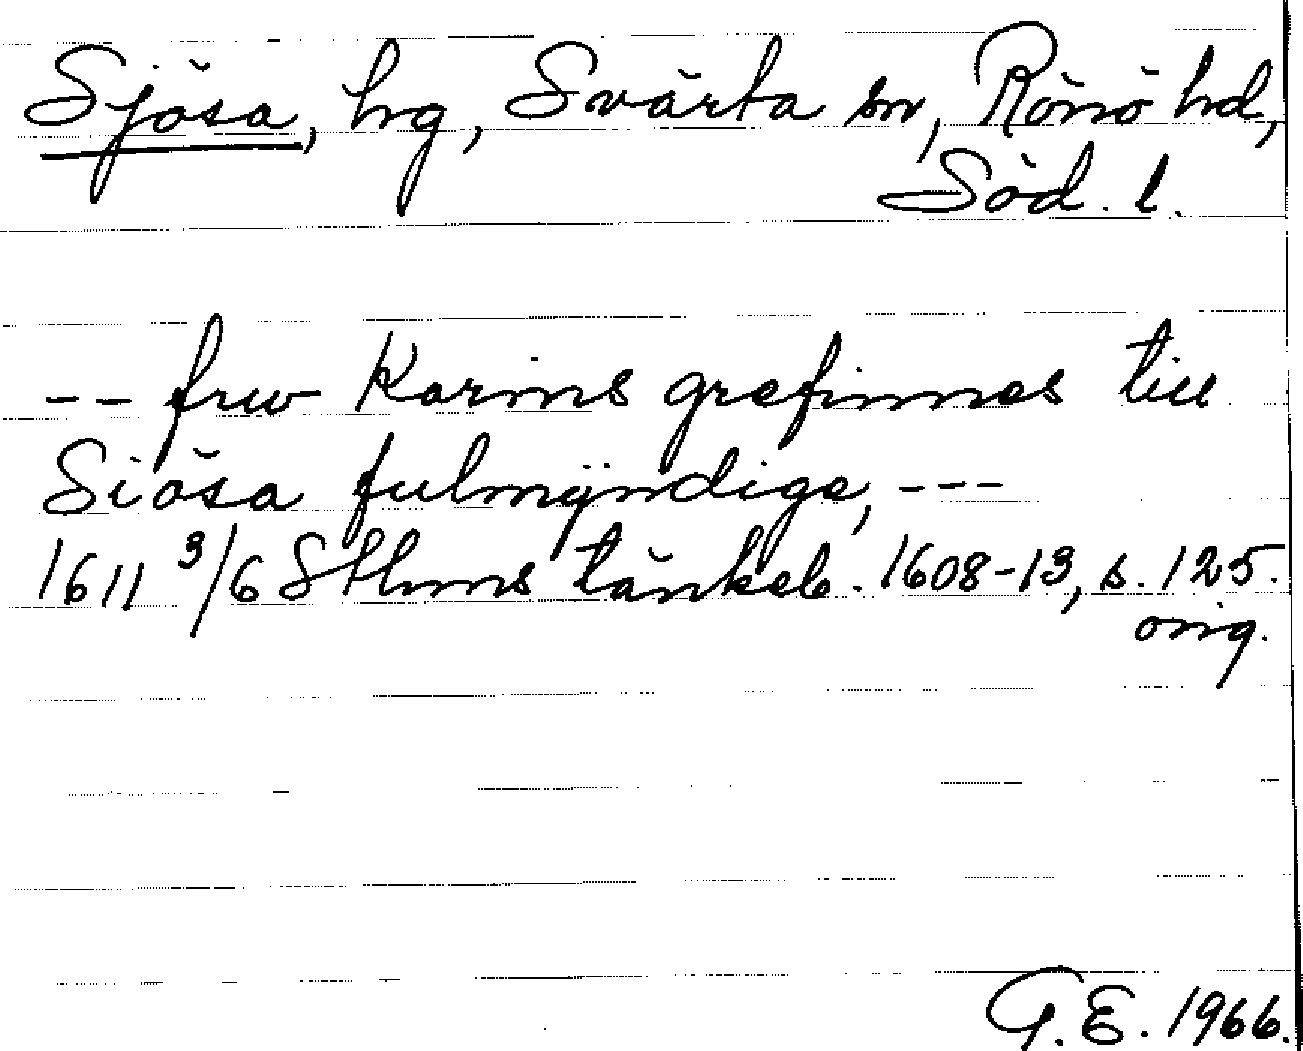 Sjösa, hg, Svärta sn, Rönö hd,
Söd. l.
-- frw Karins grefinnes till
Siösa fulmÿndige, ---
1611 3/6 Sthms tänkeb. 1608-13, s. 125.
orig.
G.E. 1966.